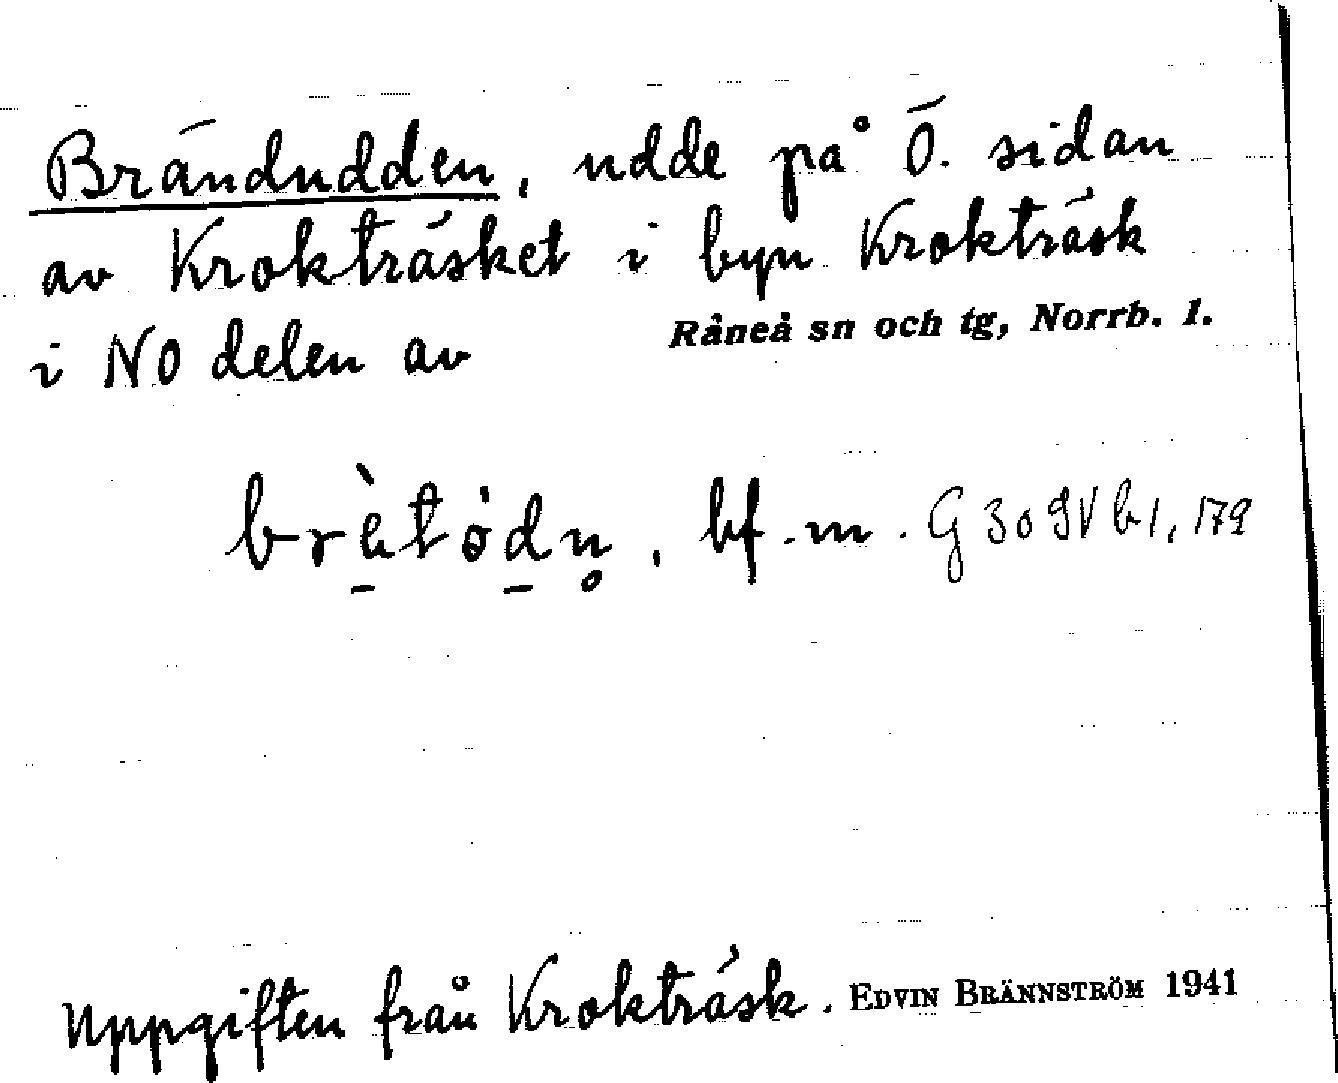 Brändudden, udde på Ö. sidan
av Kroktråsket i byn Kroktråsk
i NO delen av Råneå sn och tg, Norrb. l.
bf. m. G
Uppgiften från Kroktråsk. EDVIN BRÄNNSTRÖM 1941